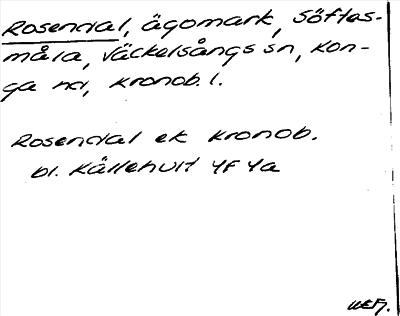 Rosendal, ägomark, Söftes-
måla, Väckelsångs sn, Kon-
ga hd, Kronob. l.
Rosendal ek Kronob.
bl. Källehult 4F 4a